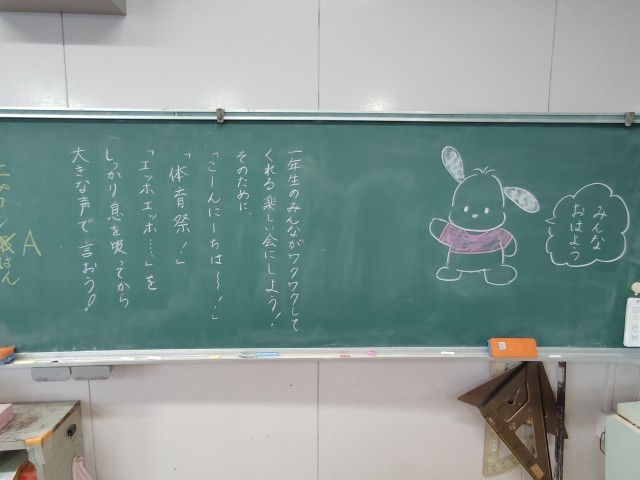 みんな
おはよう
一年生のみんながワクワクして
くれる楽しい会にしよう！
そのために、
「こーんにーちは～！」
「体育祭！」
「エッホエッホ……」を
しっかり息を吸ってから
大きな声で言おう！
A